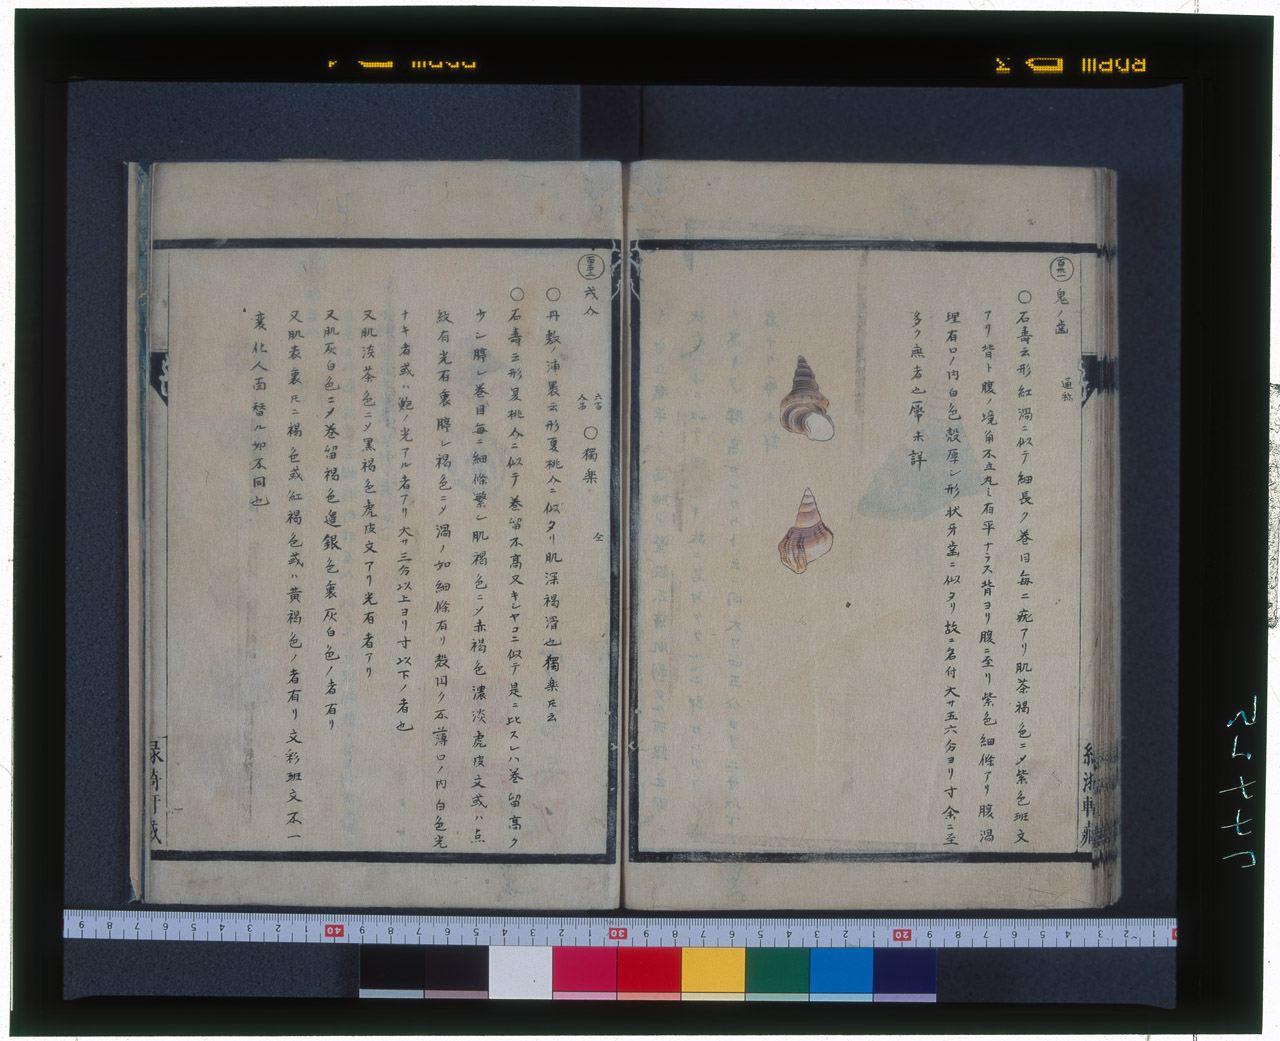 鬼ノ歯 通称
○石壽云形紅渦ニ似テ細長ク巻目毎ニ疣アリ肌茶褐色ニ〆紫色班文
アリ背ト腹ノ境角不立丸ミ有平ナラス背ヨリ腹ニ至リ紫色細條アリ腹渦
理有口ノ内白色殻厚シ形状牙歯ニ似タリ故ニ名付大サ五六分ヨリ寸余ニ至
多ク無者也厴未詳
六百
介百
○獨楽
仝
○丹敷ノ浦裏云形夏桃介ニ似タリ肌深褐滑也獨楽㆑云
○石壽云形夏桃介ニ似テ巻留不高又キシヤコニ似テ是ニ比スレハ巻留高ク
ウシ臍レ巻目毎ニ細條繁シ肌褐色ニ〆赤褐色濃淡虎皮文或ハ点
紋有光有裏臍レ褐色ニ〆渦ノ如細條有リ殻円ク不薄口ノ内白色光
ナキ者或ハ鮑ノ光アル者アリ大サ三分以上ヨリ寸以下ノ者也
又肌淡茶色ニ〆黒褐色虎皮文アリ光有者アリ
又肌灰白色ニ〆巻留褐色邉銀色裏灰白色ノ者有リ
又肌表裏㆑ニ褐色或紅褐色或ハ黄褐色ノ者有リ文彩班文不一
変化人面替ル如不同也
RDPIII
5
40
30
20